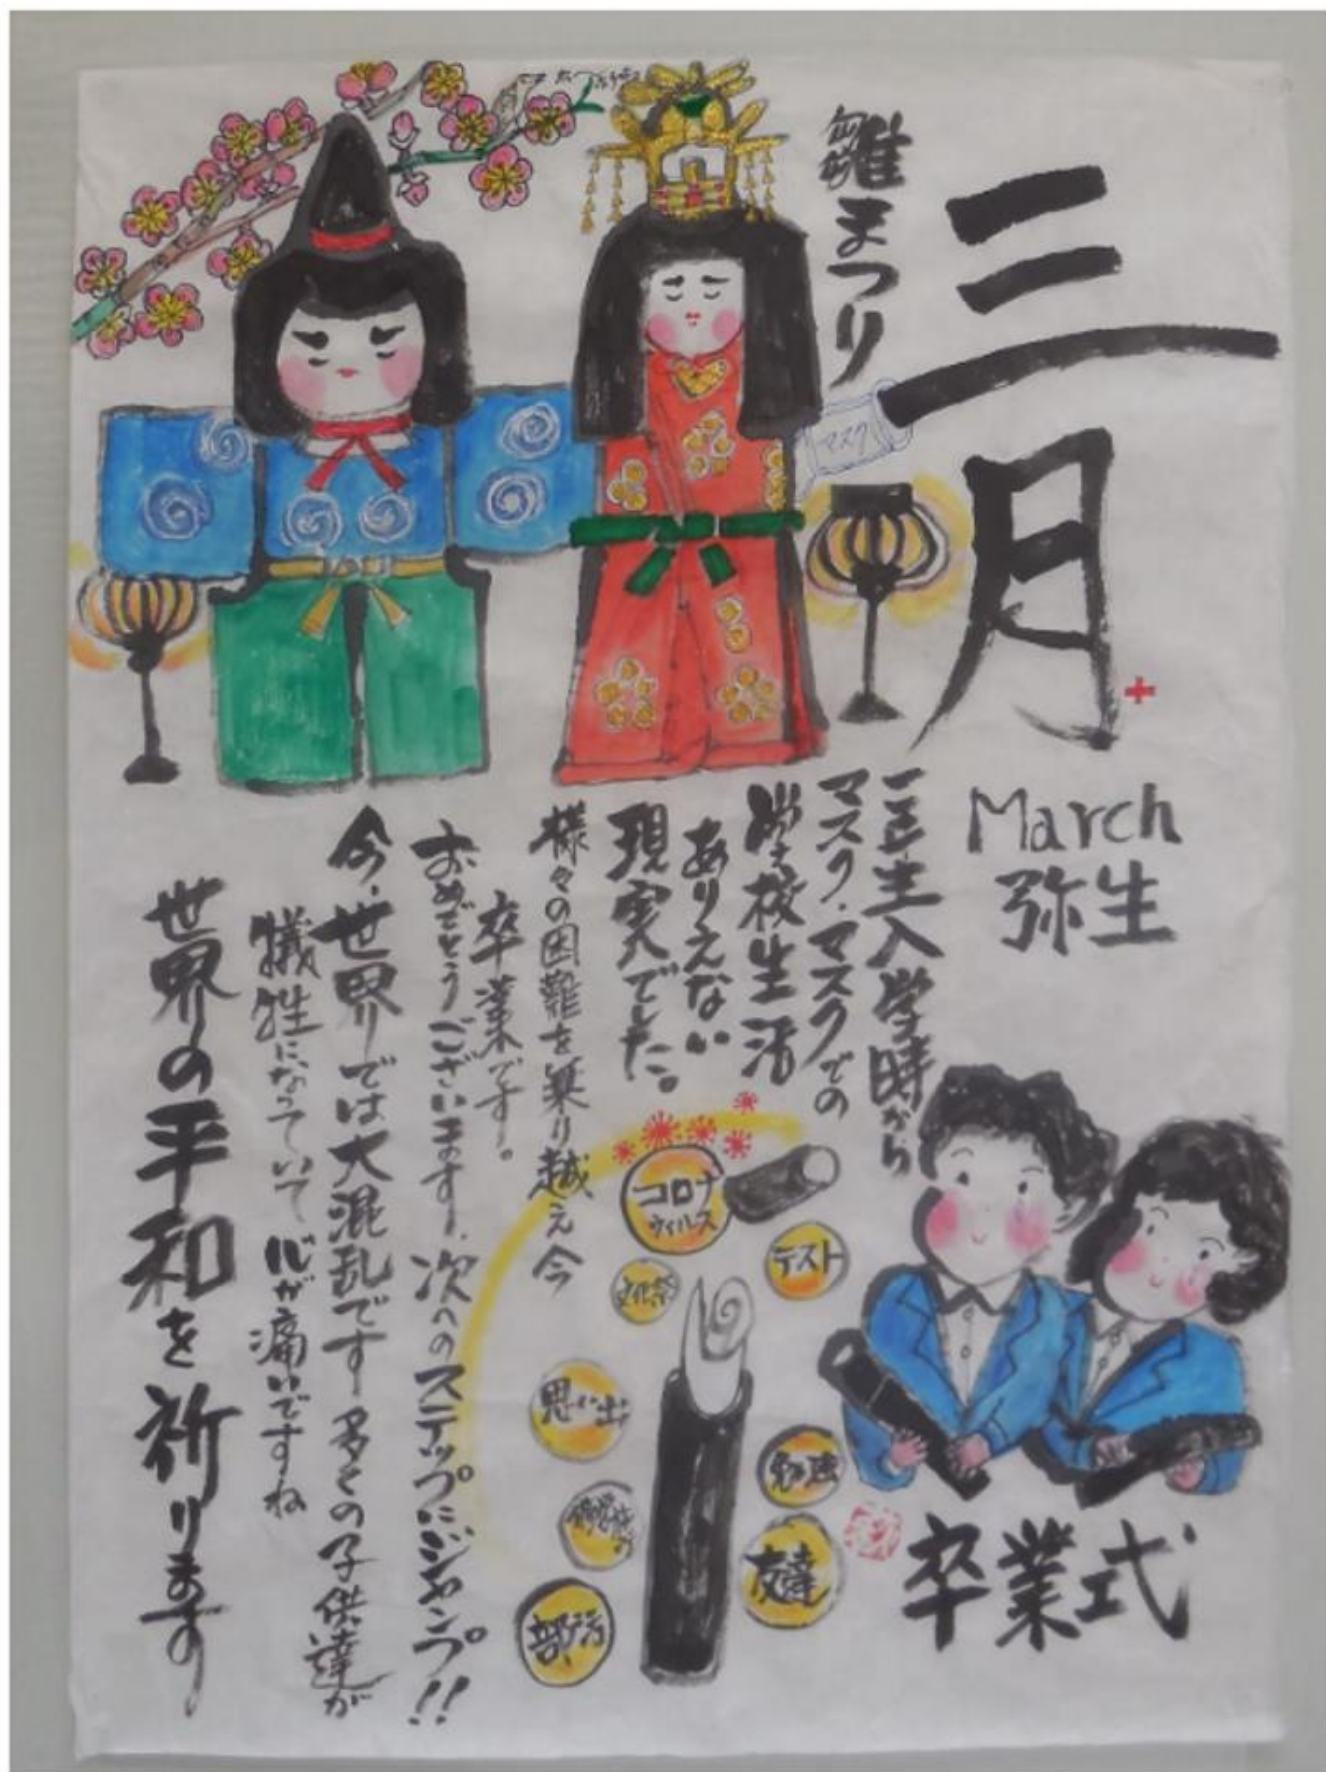 三月
雛まつり
マスク
March
弥生
三年生入学時から
マスク・マスクでの
学校生活
ありえない
現実でした。
様々の困難を乗り越え今
卒業です。
おめでとうございます!次へのステップにジャンプ!!
今・世界では大混乱です多くの子供達が
犠牲になっていて心が痛いですね
世界の平和を祈ります
コロナ
ウィルス
テスト
文化祭
思い出
勉強
友達
部活
卒業式